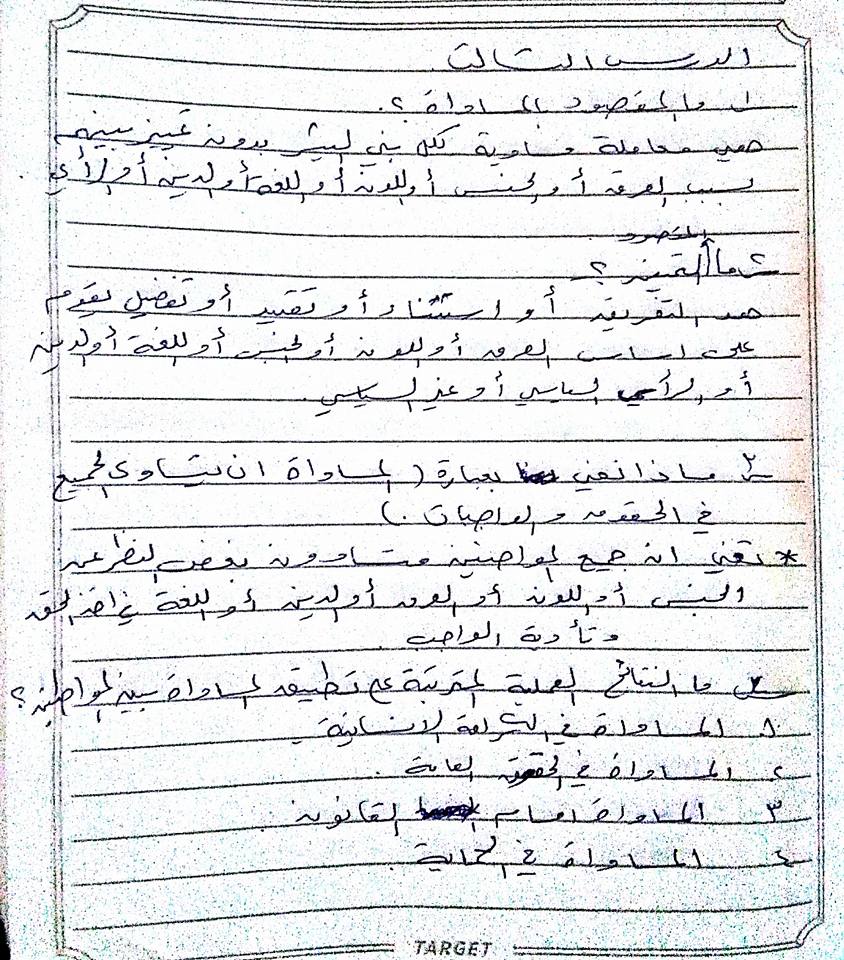 الدرس الثالث
١ـ ما المقصود بالمساواة ؟.
هي معاملة مساوية لكل بني البشر بدون تمييز بينهم
بسبب العرق أو الجنس أو اللون أو اللغة أو الدين أو الرأي
المقصود
٢ـ ما التمييز ؟
هو التفريق أو استثناء أو تقييد أو تفضيل يقوم
على اساس العرق أو اللون أو الجنس أو اللغة أو الدين
أو الرأي السياسي أو غير السياسي .
٣ـ ماذا نعني بعبارة ( المساواة ان يتساوى الجميع
في الحقوق والواجبات . )
* تعني ان جميع المواطنين متساوون بغض النظر عن
الجنس أو اللون أو العرق أو الدين أو اللغة في اخذ الحق
وتأدية الواجب .
ما النتائج العملية المترتبة على تطبيق المساواة بين المواطنين ؟
١ المساواة في الانسانية
٢ المساواة في الحقوق العامة .
٣ المساواة امام القانون .
٤ المساواة في الحماية .
TARGET